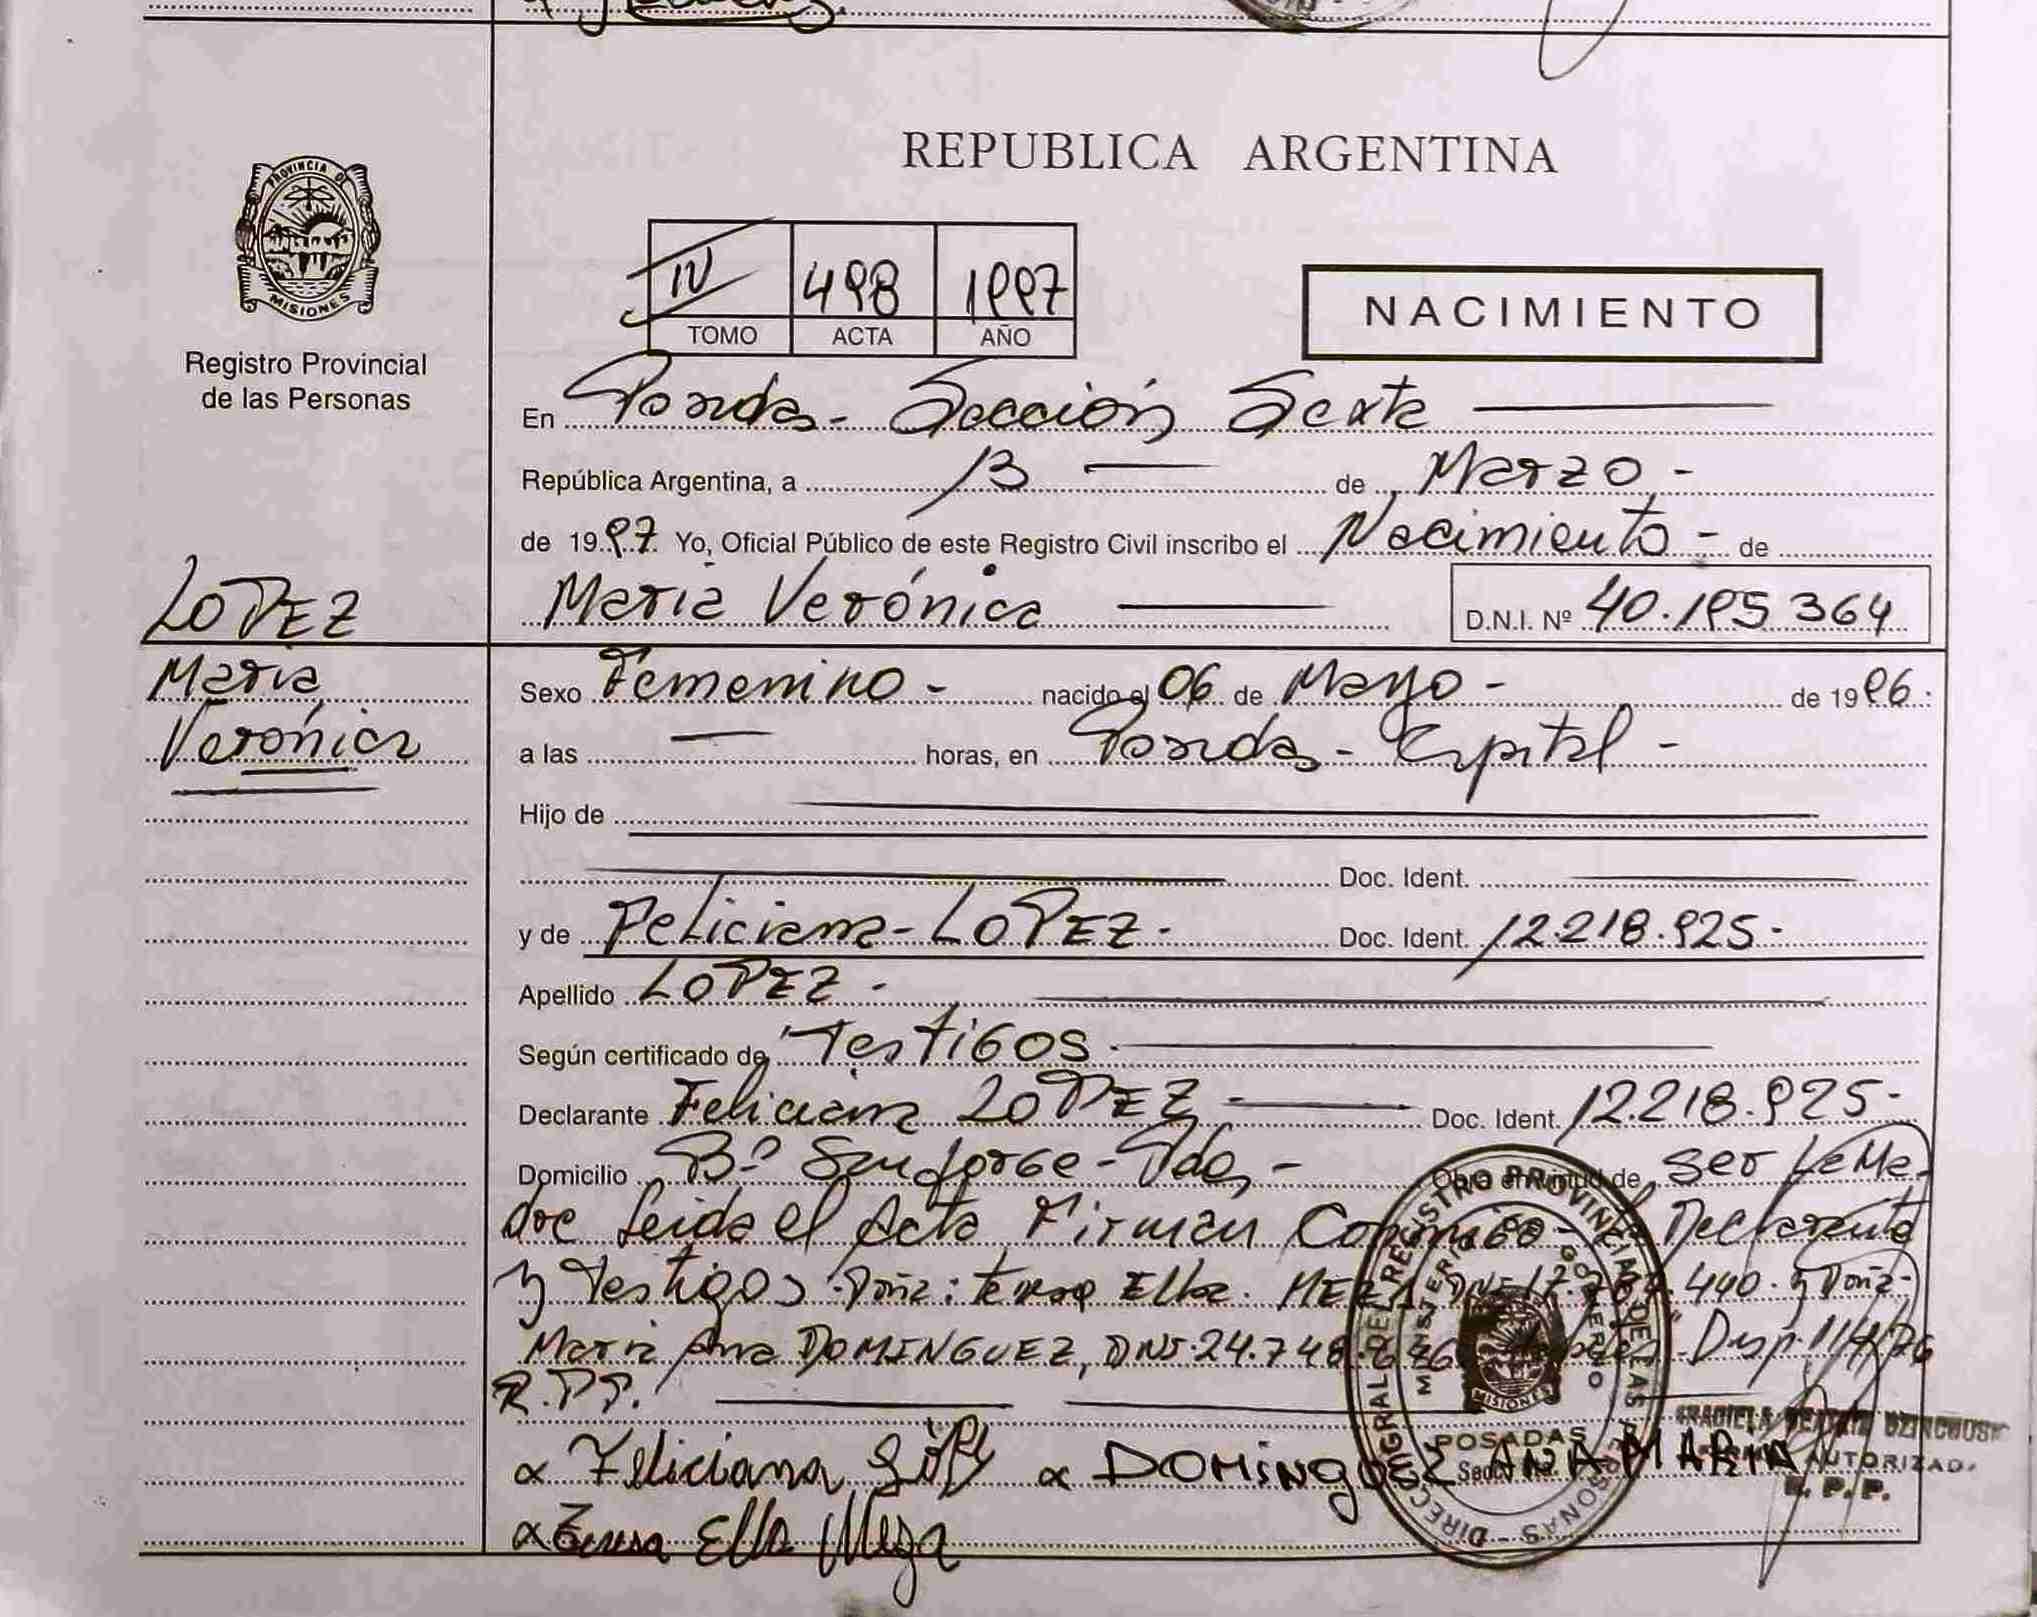 REPUBLICA ARGENTINA
PROVINCIA DE
MISIONES
Registro Provincial
de las Personas
IV 498 1997
TOMO ACTA AÑO
NACIMIENTO
En Posadas - Sección Sexta
República Argentina, a 13 de Marzo -
de 1997 Yo, Oficial Público de este Registro Civil inscribo el Nacimiento - de
LOPEZ
María Verónica D.N.I. Nº 40.195 364
María
Verónica
Sexo Femenino - nacido el 06 de Mayo - de 1996.
a las horas, en Posadas - Capital -
Hijo de
Doc. Ident.
y de Feliciana - LOPEZ - Doc. Ident. 12.218.925 -
Apellido LOPEZ -
Según certificado de Testigos -
Declarante Feliciana LOPEZ - Doc. Ident. 12.218.925 -
Domicilio Bº San Jorge - Pdas - Obra en virtud de ser la Ma-
dre Leida el Acta Firman Conmigo - Declarante
y Testigos Doña: teresa Elba. MEZA DNI 17. 440. y Doña
Maria Ana DOMINGUEZ, DNI. 24.748. Disp. 11/1/76
R.P.P.
Feliciana López DOMINGUEZ ANA MARIA
Teresa Elba Meza
DIRECC GRAL DEL REGISTRO PROVINCIAL DE LAS PERSONAS
MINISTERIO GOBIERNO
MISIONES
POSADAS
AUTORIZAD.
R. P. P.